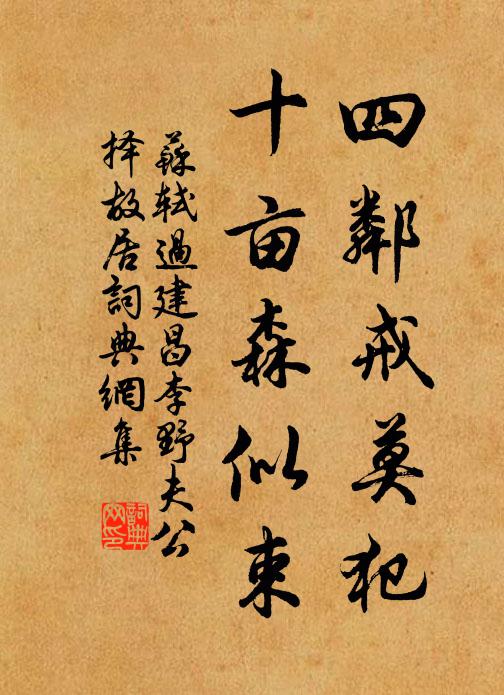 四鄰戒莫犯
十亩森似束
蘇轼過建昌李野夫公
择故居詞典網集
詞典
网印